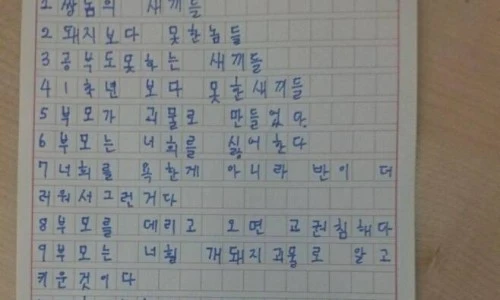 1 쌍놈의 새끼들
2 돼지보다 못한놈들
3 공부도못하는 새끼들
4 1학년 보다 못한새끼들
5 부모가 괴물로 만들었다.
6 부모는 너희를 싫어한다
7 너희를 욕한게 아니라 반이 더
러워서그런거다
8 부모를 데리고 오면 교권침해다
9 부모는 너흴 개돼지괴물로 알고
키운것이다